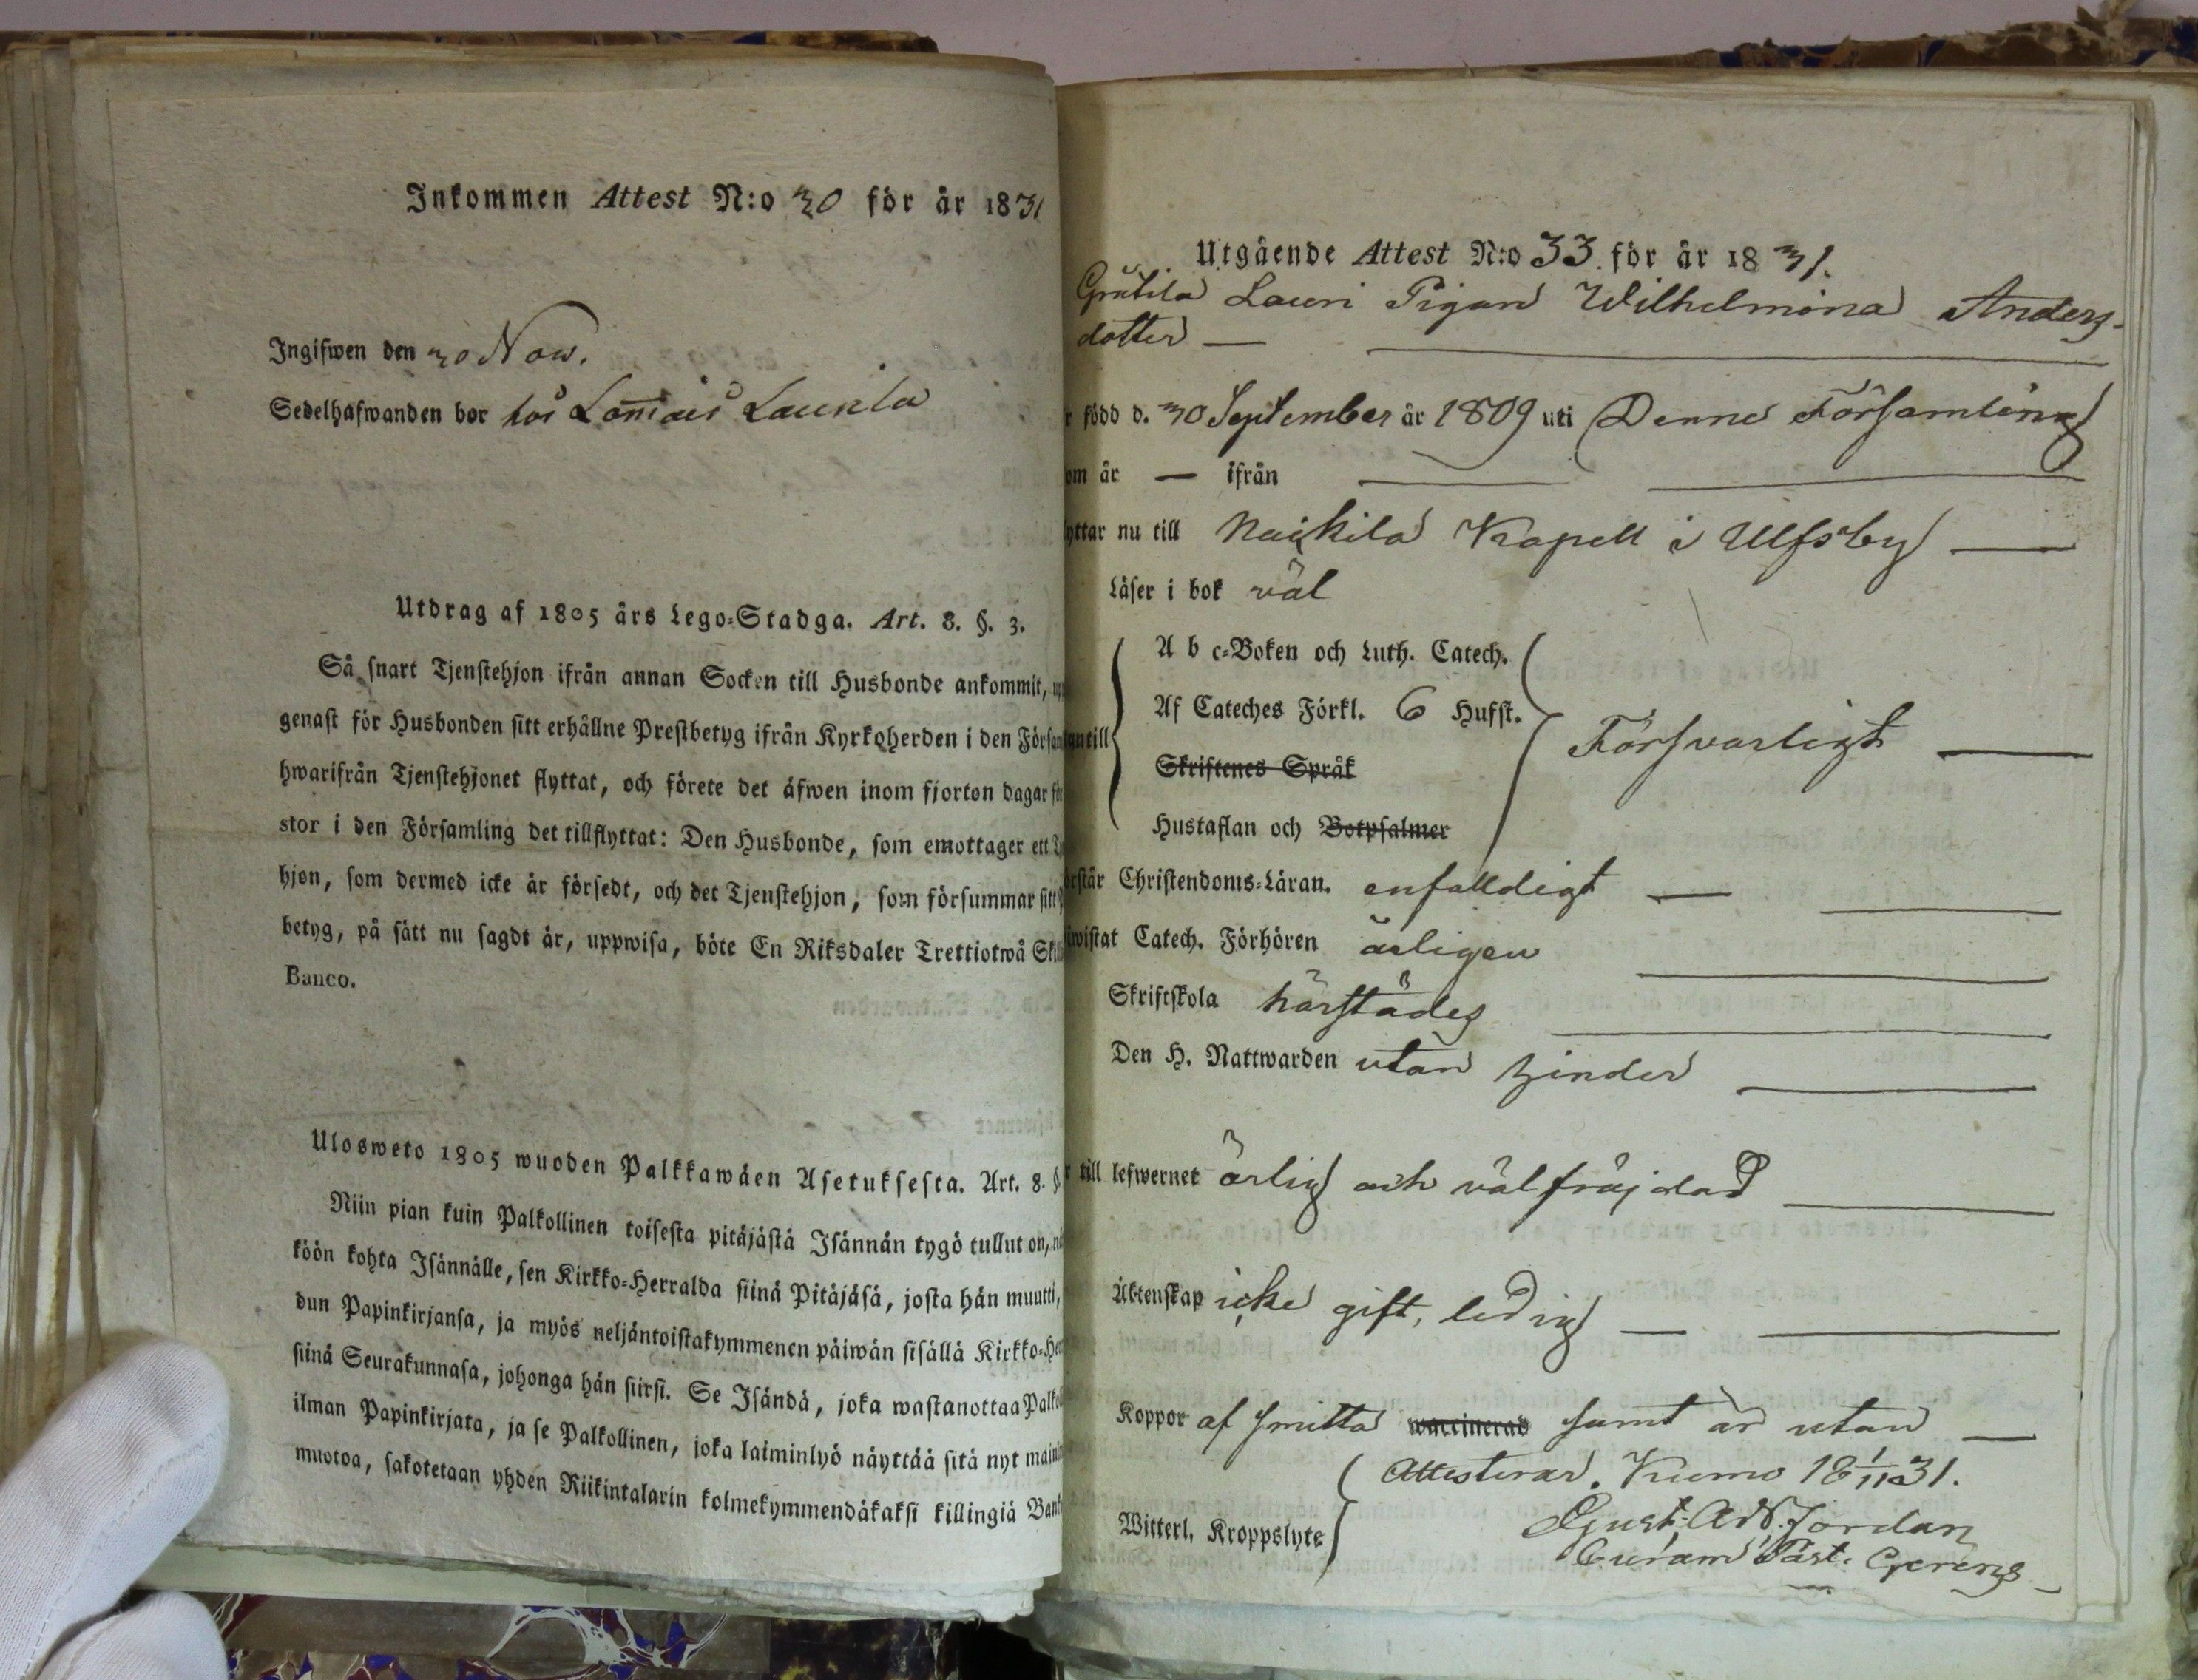 Inkommen Attest N:o 30 för år 1831
Ingifwen den 30 Now.
Sedelhafwanden bor hos Laurila
Utdrag af 1805 års Lego-Stadga. Art. 8. §. 3.
Så snart Tjenstehjon ifrån annan Socken till Husbonde ankommit,
genast för Husbonden sitt erhållne Prestbetyg ifrån Kyrkoherden i den Försam
hwarifrån Tjenstehjonet flyttat, och förete det äfwen inom fjorton dagar
stor i den Församling det tillflyttat: Den Husbonde, som emottager ett
hjon, som dermed icke är försedt, och det Tjenstehjon, som försummar sitt
betyg, på sätt nu sagdt är, uppwisa, böte En Riksdaler Trettiotwå Sk
Banco.
Ulosweto 1805 wuoden Palkkawäen Asetuksesta. Art. 8. §
Niin pian kuin Palkollinen toisesta pitäjästä Isännän tygö tullut on, nä
köön kohta Isännälle, sen Kirkko-Herralda siinä Pitäjäsä, josta hän muutti,
dun Papinkirjansa, ja myös neljäntoistakymmenen päiwän sisällä Kirkko-Her
siinä Seurakunnasa, johonga hän siirsi. Se Isändä, joka wastanottaa Palko
ilman Papinkirjata, ja se Palkollinen, joka laiminlyö näyttää sitä nyt mainit
muotoa, sakotetaan yhden Riikintalarin kolmekymmendäkaksi killingiä Bank
Utgående Attest N:o 33 för år 1831.
Lauri Pigan Wilhelmina Anders-
dotter —
r född d. 30 September år 1809 uti Denne Församling
om år — ifrån
yttar nu till Nackila Kapell i Ulfsby —
Läser i bok väl
A b c-Boken och Luth. Catech.
Af Cateches Förkl. 6 Hufst.
antill
Försvarligt —
Skriftenes Språk
Hustaflan och Botpsalmer
örstår Christendoms-Läran. enfalldigt —
iwistat Catech. Förhören årligen
Skriftskola härstädes
Den H. Nattwarden utan hinder
r till lefwernet ärlig och välfräjdad
Äktenskap icke gift, ledig —
Koppor af smitta waccinerad samt är utan —
Attesterar. Kumo 18 1/11 31.
Witterl. Kroppslyte
Gust. Ad. Jordan
Past.